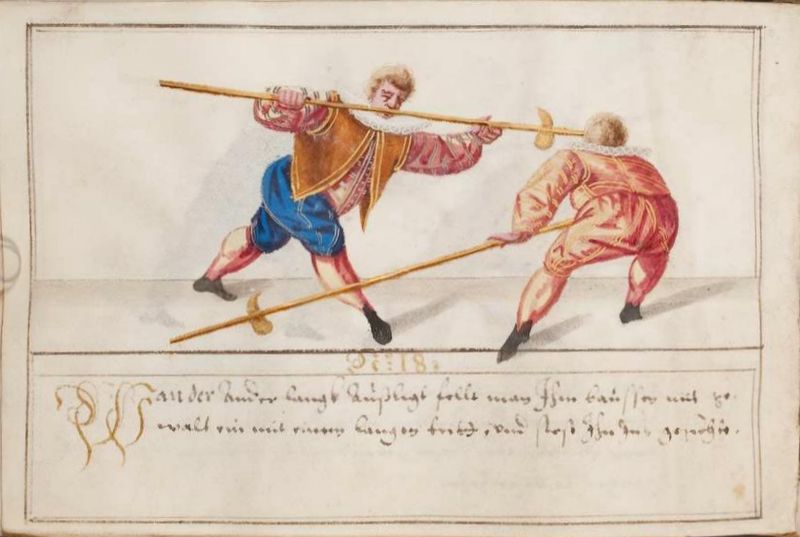 N: 18.
Wan der ander langk Außligt felt man Ihm daussen mit ge-
walt ein mit einem langen tritt, vnd stost Ihn Ins gesicht.